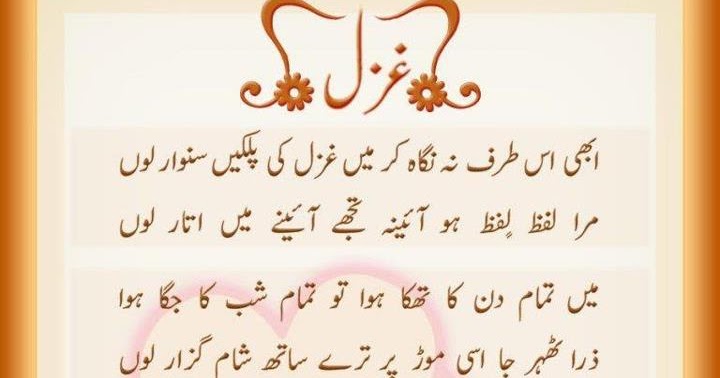 غزل
ابھی اس طرف نہ نگاہ کر میں غزل کی پلکیں سنوار لوں
مرا لفظ لفظ ہو آئینہ تجھے آئینے میں اتار لوں
میں تمام دن کا تھکا ہوا تو تمام شب کا جگا ہوا
ذرا ٹھہر جا اسی موڑ پر ترے ساتھ شام گزار لوں